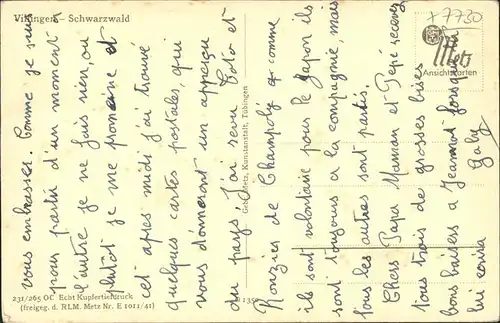 Villingen - Schwarzwald
+7730
Metz
Ansichtskarten
vous embrasser. Comme je suis
pour partir d'un moment à
l'autre je ne fais rien, ou
plutôt je me promène et
cet après midi j'ai trouvé
quelques cartes postales, qui
vous donneront un aperçu
du pays. J'ai revu Toto et
Rouzier de Champoly & comme
ils sont volontaire pour le Japon ils
sont toujours à la compagnie, mais
tous les autres sont partis.
Chers Papa Maman et Pépé recevez
tous trois de grosses bises
bons baisers à Jeannot lorsque
lui
Gaby
Gebr. Metz, Kunstanstalt, Tübingen
231/265 OC Echt Kupfertiefdruck
(freigeg. d. RLM. Metz Nr. E 1011/41)